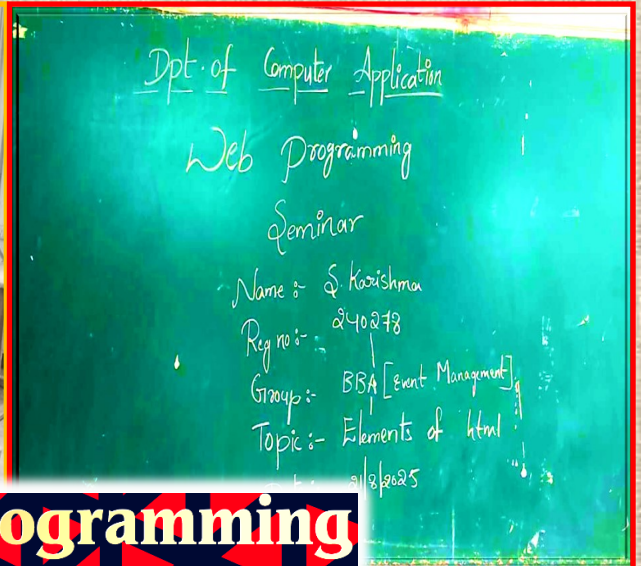 Dpt. of Computer Application
Web Programming
Seminar
Name :- S. Karishma
Reg no :- 240278
Group :- BBA [Event Management]
Topic :- Elements of html
21/8/2025
ogramming